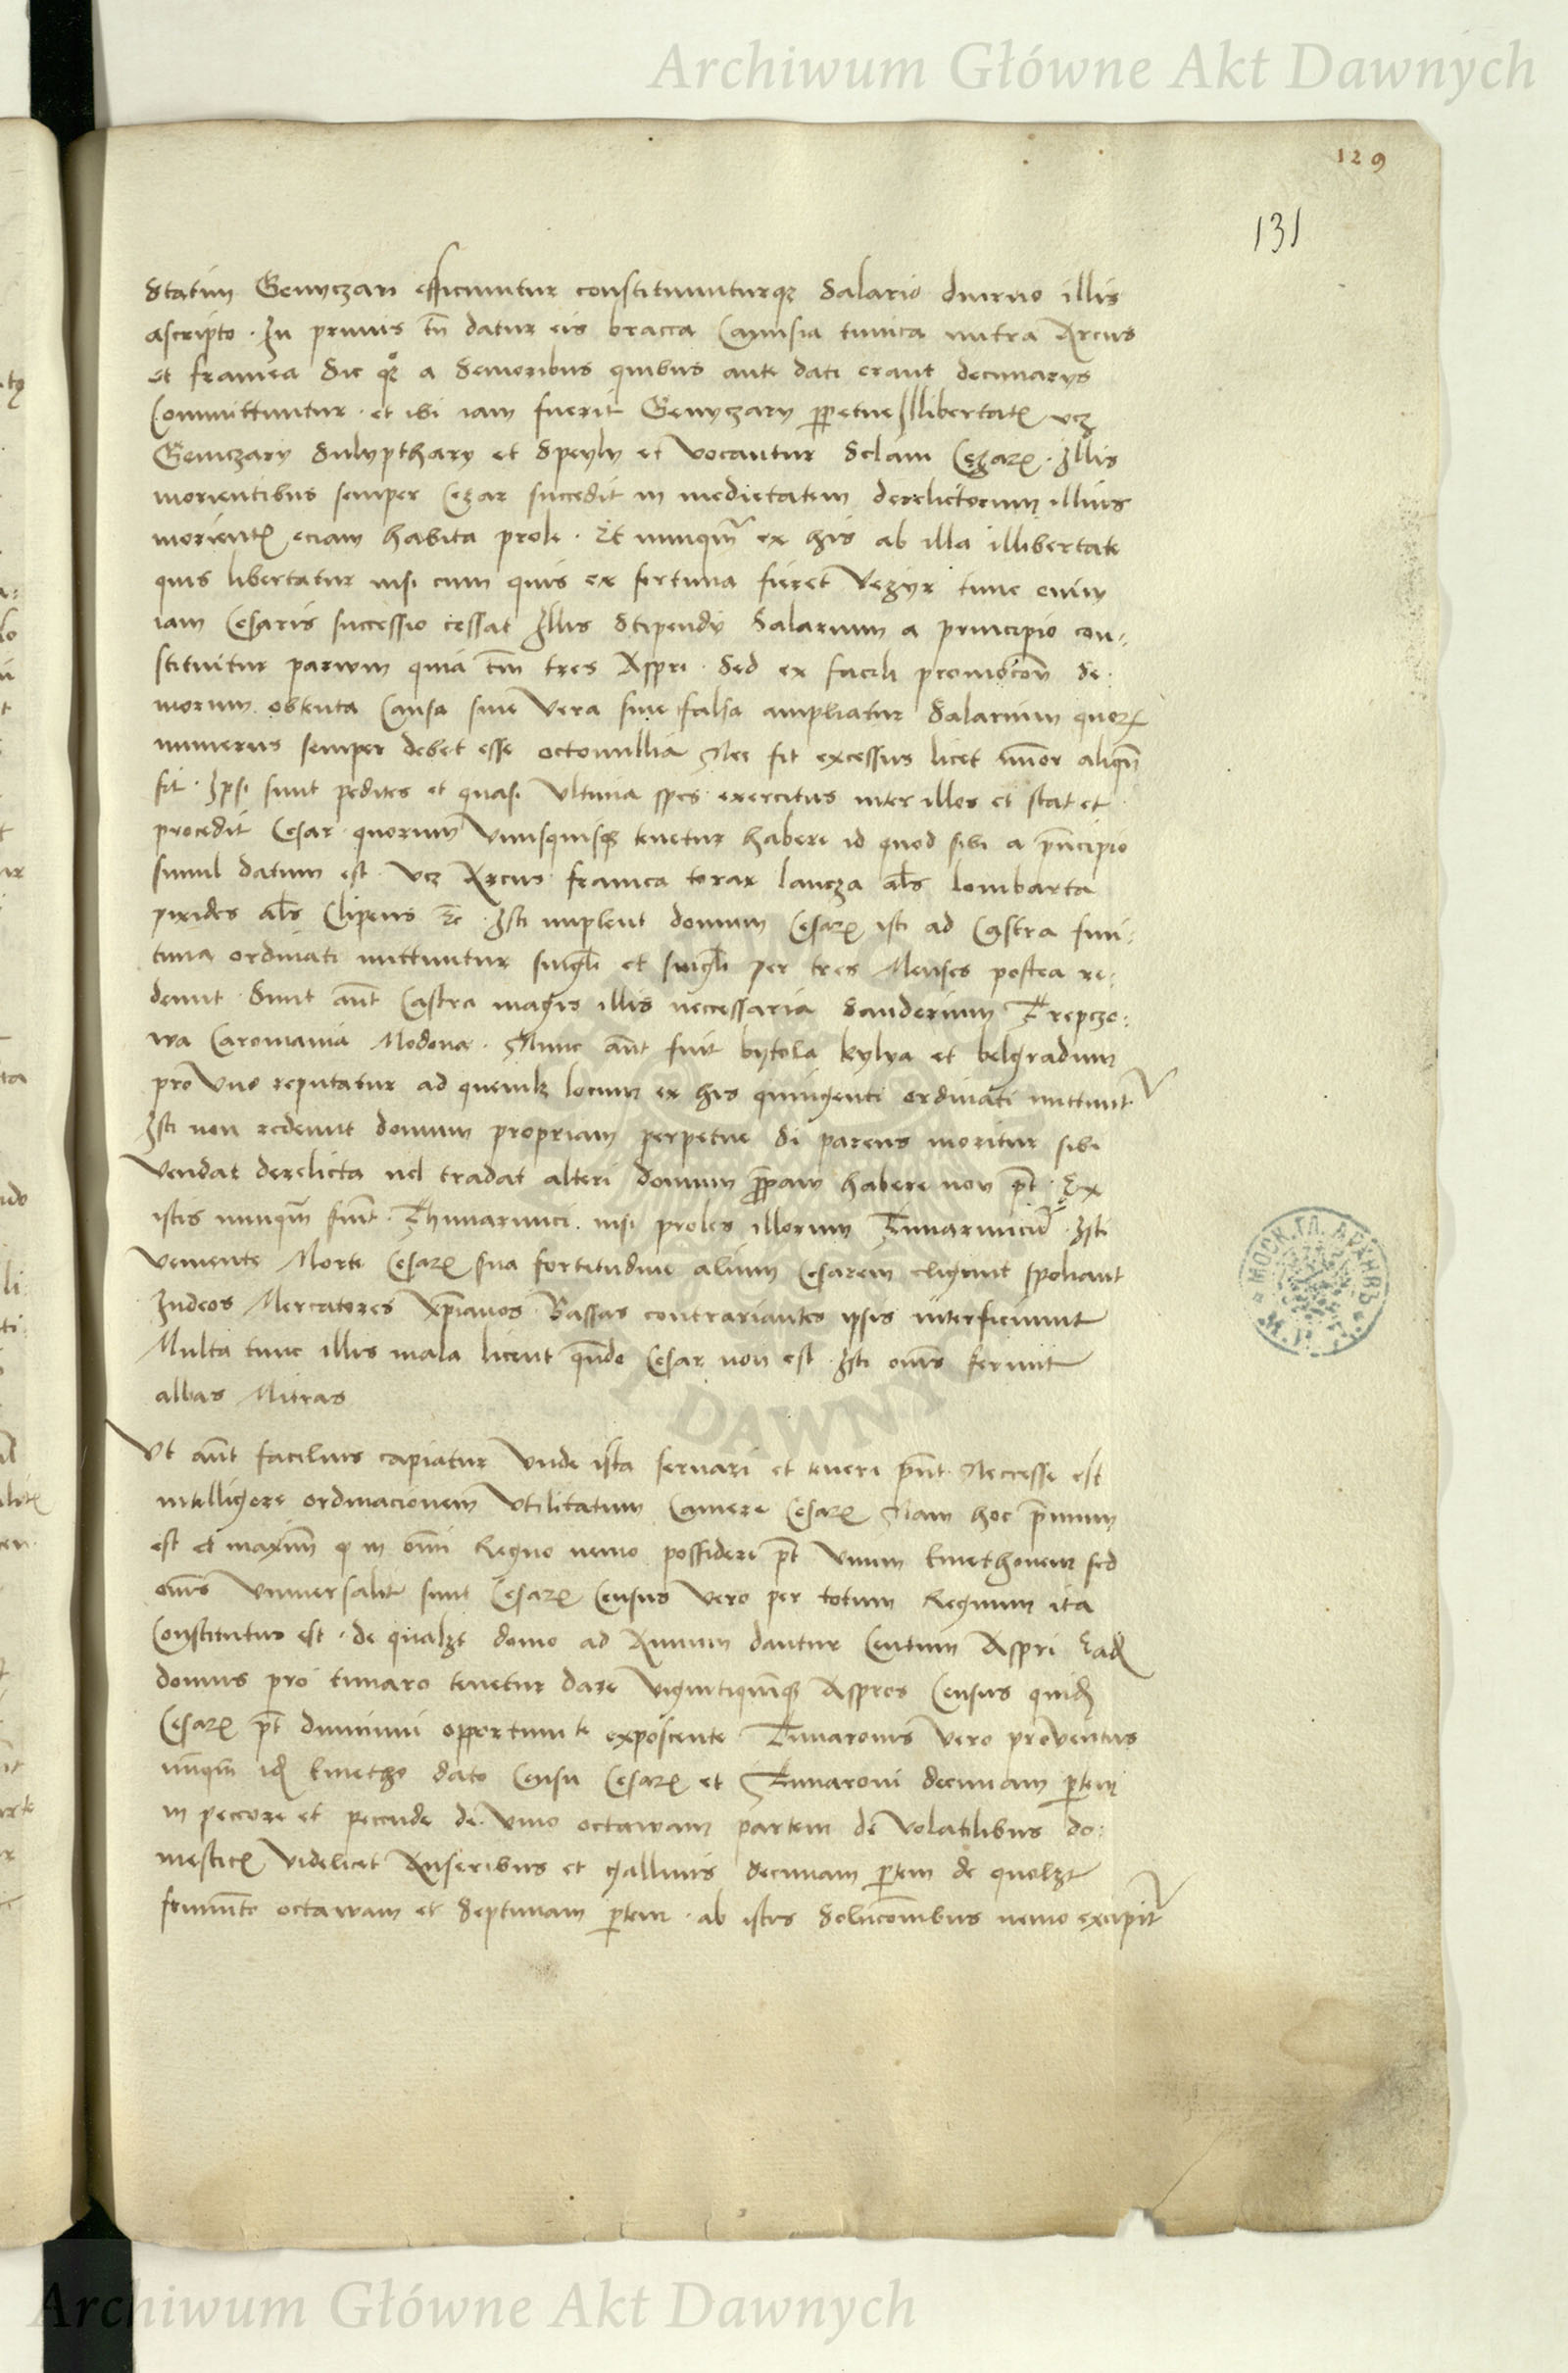 Archiwum Główne Akt Dawnych
129
131
Statim Genyczari efficiuntur constituunturqz Salario diurno illis
ascripto · In primis tn̄ datur eis bracca Camisia tunica mitra Arcus
et framea Sic qz a Senioribus quibus ante dati erant decimarys
Committuntur · et ibi iam fuerit Genyczary ꝑpetue illibertatꝭ vcz
Geniczary Sulypthary et Speyly et vocantur Sclavi Cezarꝭ · Illis
morientibus semper Cezar succedit in medietatem derelictorum illius
morientꝭ eciam habita prole · Et nunqm̄ ex his ab illa illibertate
quis libertatur nisi cum quis ex fortuna fieret Vezyr tunc enim
iam Cesaris successio cessat Illis Stipendy Salarium a principio con-
stituitur parvum quia tm̄ tres Aspri · Sed ex facili promocōn Se-
niorum obtenta Causa sive vera sive falsa ampliatur Salarium quorꝝ
numerus semper debet esse octomillia Nec fit excessus licet minor aliqn̄
sit · Ipsi sunt pedites et quasi ultima spes exercitus inter illos et stat et
procedit Cesar quorum Unusquisqz tenetur habere id quod sibi a pn̄cipio
simul datum est vcz Arcus framea torax lancza al̄s lombarta
pixides al̄s Clipeus &c · Isti implent domum Cesarꝭ isti ad Castra fini-
tima ordinati mittuntur singl̄i et singl̄i per tres Menses postea re-
deunt · Sunt aūt Castra magis illis necessaria Sanderium Trepczo-
wa Caromania Modona · Nunc aūt fuit bytola kylya et belgradum
pro Uno reputatur ad quemlz locum ex his quingenti ordinati mittunt
Isti non redeunt domum propriam perpetue Si parens moritur sibi
vendat derelicta vel tradat alteri domum ꝓpam habere non pt̄ · Ex
istis nunqm̄ fiūt Thimarinci nisi proles illorum Timarincid · Isti
veniente Morte Cesarꝭ sua fortitudine alium Cesarem eligunt spoliant
Iudeos Mercatores xp̄ianos Bassas contrariantes ipsis interficiunt
Multa tunc illis mala licent qn̄do Cesar non est · Isti om̄s ferunt
albas Mitras
Ut aūt facilius capiatur Unde ista servari et teneri pn̄t Necesse est
intelligere ordinacionem Utilitatum Camere Cesarꝭ Nam hoc p̄mum
est et maxim̄ q in om̄i Regno nemo possidere pt̄ Unum kmethonem sed
om̄s Universalit sunt Cesarꝭ Census vero per totum Regnum ita
Constitutus est · de qualzt domo ad Annum dantur Centum Aspri Eadꝫ
domus pro timaro tenetur dare vigintiquinqz Aspros Census quidꝫ
Cesarꝭ pt̄ diminui opportunite exposcente Timaronis vero proventus
nūqm̄ idꝫ kmetho dato Censu Cesarꝭ et Timaroni decimam ꝑtem
in peccore et peccude de vino octavam partem de volatilibus do-
mesticꝭ videlicet Anseribus et gallinis decimam ꝑtem de quolzt
frumēto octavam et Septimam ꝑtem · ab istis Solucōnibus nemo excipit
МОСК. ГЛ. АРХИВЪ
Archiwum Główne Akt Dawnych